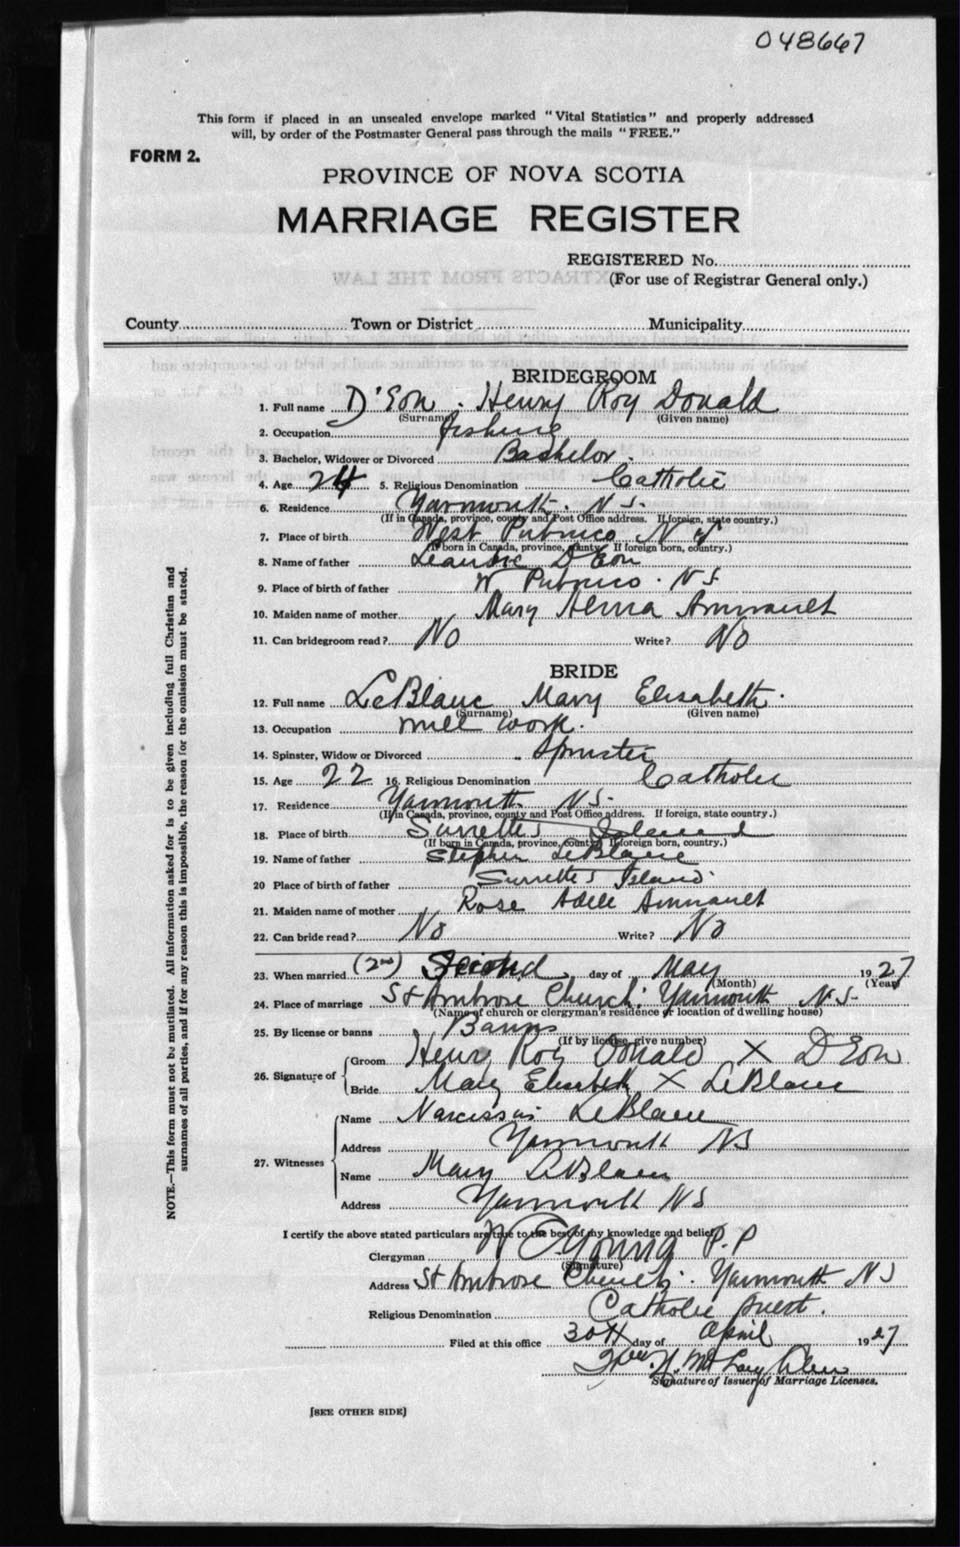 048667
This form if placed in an unsealed envelope marked "Vital Statistics" and properly addressed
will, by order of the Postmaster General pass through the mails "FREE."
FORM 2.
PROVINCE OF NOVA SCOTIA
MARRIAGE REGISTER
REGISTERED No.
(For use of Registrar General only.)
County Town or District Municipality
BRIDEGROOM
1. Full name D'Eon . Henry Roy Donald
(Surname) (Given name)
2. Occupation fishing
3. Bachelor, Widower or Divorced Bachelor.
4. Age 24 5. Religious Denomination Catholic
6. Residence Yarmouth. N S.
(If in Canada, province, county and Post Office address. If foreign, state country.)
7. Place of birth West Pubnico N S
(If born in Canada, province, county. If foreign born, country.)
8. Name of father Leandre D'Eon
9. Place of birth of father W Pubnico . N S
10. Maiden name of mother Mary Amirault
11. Can bridegroom read? No Write? No
BRIDE
12. Full name LeBlanc Mary Elisabeth.
(Surname) (Given name)
13. Occupation mill work.
14. Spinster, Widow or Divorced Spinster
15. Age 22 16. Religious Denomination Catholic
17. Residence Yarmouth N S.
(If in Canada, province, county and Post Office address. If foreign, state country.)
18. Place of birth Surrettes Island
(If born in Canada, province, county. If foreign born, country.)
19. Name of father Stephen LeBlanc
20 Place of birth of father Surrettes Island.
21. Maiden name of mother Rose Adele Amirault
22. Can bride read? No Write? No
23. When married (2nd) Second day of May 1927
(Month) (Year)
24. Place of marriage St Ambrose Church. Yarmouth N S.
(Name of church or clergyman's residence or location of dwelling house)
25. By license or banns Banns
(If by license, give number)
26. Signature of
Groom Henry Roy Donald X D'Eon
Bride Mary Elisabeth X LeBlanc
27. Witnesses
Name Narcissus LeBlanc
Address Yarmouth NS
Name Mary LeBlanc
Address Yarmouth NS
I certify the above stated particulars are true to the best of my knowledge and belief,
Clergyman W Young P.P
(Signature)
Address St Ambrose Church. Yarmouth NS
Religious Denomination Catholic priest.
Filed at this office 30th day of April 1927
Signature of Issuer of Marriage Licenses.
[SEE OTHER SIDE]
NOTE.—This form must not be mutilated. All information asked for is to be given including full Christian and
surnames of all parties, and if for any reason this is impossible, the reason for the omission must be stated.